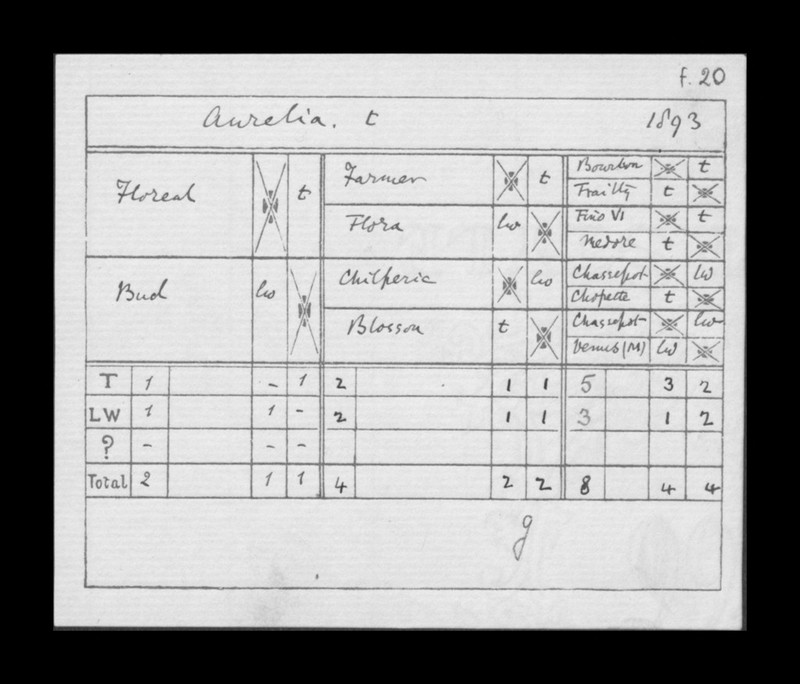 f. 20
Aurelia. t 1893
Floreal t
Farmer t
Bourbon t
Frailty t
Flora lw
Fino VI t
Nedore t
Bud lw
Chilperic lw
Chassepot lw
Chopette t
Blosson t
Chassepot lw
Venus (M) lw
T 1 - 1 2 1 1 5 3 2
LW 1 1 - 2 1 1 3 1 2
? - - -
Total 2 1 1 4 2 2 8 4 4
g